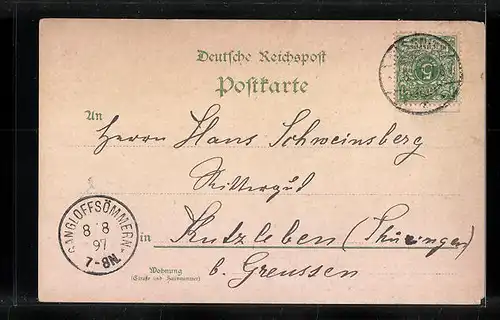 Deutsche Reichspost
Postkarte
An
Herrn Hans Schweinsberg
Rittergut
in Kutzleben (Thüringen)
Wohnung
(Straße und Hausnummer)
b. Greussen
GANGLOFFSÖMMERN
8 8
97
7-8N.
5